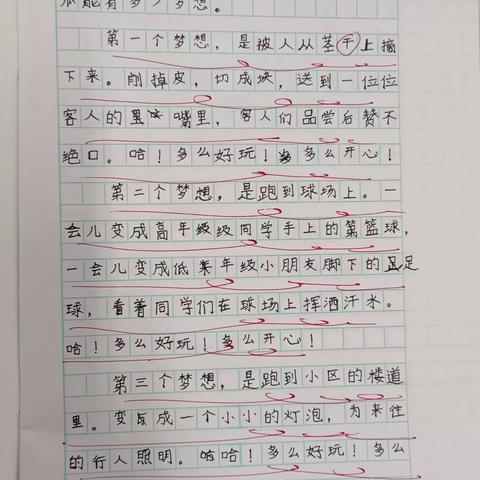 瓜能有多少梦想。
第一个梦想，是被人从茎干上摘
下来。削掉皮，切成块，送到一位位
客人的嘴里，客人们品尝后赞不
绝口。哈！多么好玩！多么开心！
第二个梦想，是跑到球场上。一
会儿变成高年级同学手上的篮球，
一会儿变成低年级小朋友脚下的足
球，看着同学们在球场上挥洒汗水。
哈！多么好玩！多么开心！
第三个梦想，是跑到小区的楼道
里。变成一个小小的灯泡，为来往
的行人照明。哈哈！多么好玩！多么